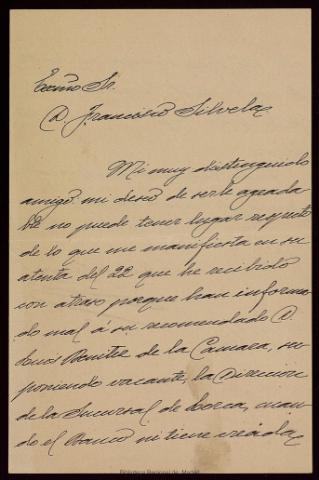 Excmo Sr.
D. Francisco Silvela
Mi muy distinguido
amigo: mi deseo de serle agrada
ble no puede tener lugar respecto
de lo que me manifiesta en su
atenta del 22 que he recibido
con atraso porque han informa
do mal á su recomendado D.
Benitez de la Camara, su
poniendo vacante, la Direccion
de la Sucursal de Lorca, cuan
do el Banco ni tiene creada
Biblioteca Regional de Madrid